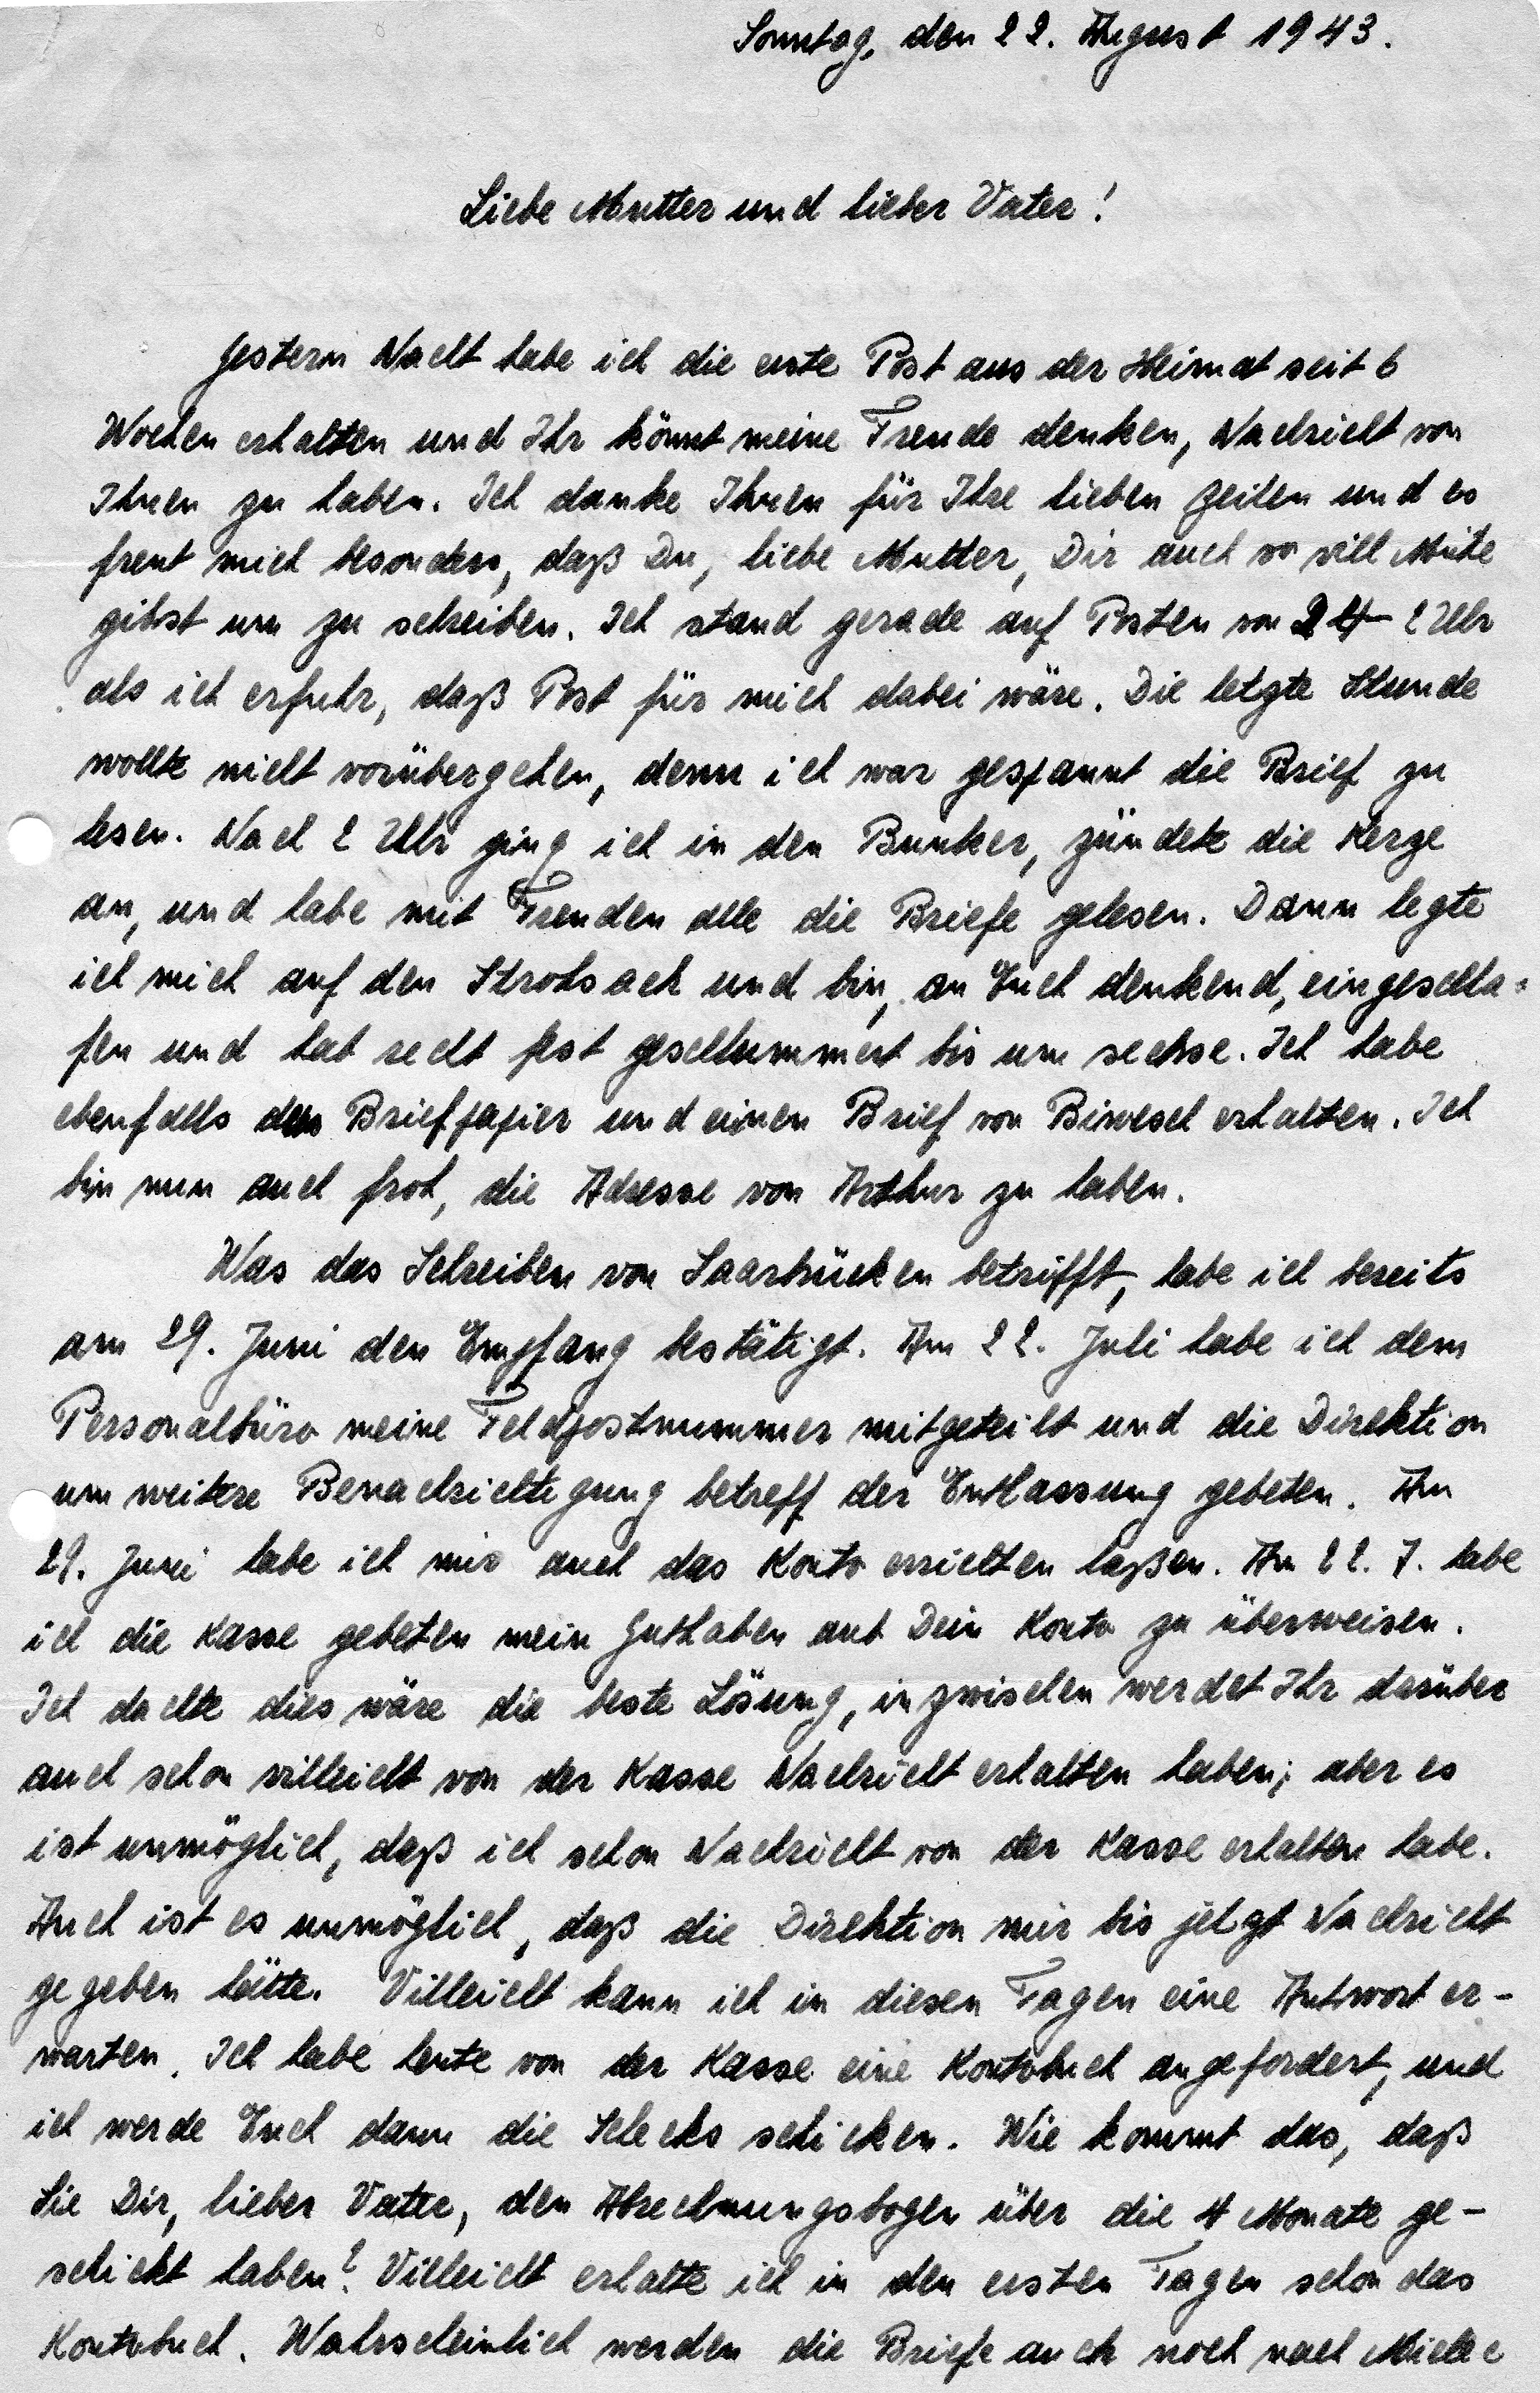 Sonntag, den 22. August 1943.
Liebe Mutter und lieber Vater!
Gestern Nacht habe ich die erste Post aus der Heimat seit 6
Wochen erhalten und Ihr könnt meine Freude denken, Nachricht von
Ihnen zu haben. Ich danke Ihnen für Ihre lieben Zeilen und es
freut mich besonders, daß Du, liebe Mutter, Dir auch so vill Mühe
gibst um zu schreiben. Ich stand gerade auf Posten von 24-2 Uhr
als ich erfuhr, daß Post für mich dabei wäre. Die letzte Stunde
wollte nicht vorübergehen, denn ich war gespannt die Brief zu
lesen. Nach 2 Uhr ging ich in den Bunker, zündete die Kerze
an, und habe mit Freuden alle die Briefe gelesen. Dann legte
ich mich auf den Strohsack und bin, an Euch denkend, eingeschla=
fen und hab recht fest geschlummert bis um sechse. Ich habe
ebenfalls das Briefpapier und einen Brief von Biwesch erhalten. Ich
bin nun auch froh, die Adresse von Arthur zu haben.
Was das Schreiben von Saarbrücken betrifft, habe ich bereits
am 29. Juni den Empfang bestätigt. Am 22. Juli habe ich dem
Personalbüro meine Feldpostnummer mitgeteilt und die Direktion
um weitere Benachrichtigung betreff der Entlassung gebeten. Am
29. Juni habe ich mir auch das Konto errichten laßen. Am 22. 7. habe
ich die Kasse gebeten mein Guthaben auf Dein Konto zu überweisen.
Ich dachte dies wäre die beste Lösung, inzwischen werdet Ihr darüber
auch schon villeicht von der Kasse Nachricht erhalten haben; aber es
ist unmöglich, daß ich schon Nachricht von der Kasse erhalten habe.
Auch ist es unmöglich, daß die Direktion mir bis jetzt Nachricht
gegeben hätte. Villeicht kann ich in diesen Tagen eine Antwort er-
warten. Ich habe heute von der Kasse eine Kontobuch angefordert, und
ich werde Euch dann die Schecks schicken. Wie kommt das, daß
Sie Dir, lieber Vater, den Abrechnungsbogen über die 4 Monate ge-
schickt haben? Villeicht erhalte ich in den ersten Tagen schon das
Kontobuch. Wahrscheinlich werden die Briefe auch noch nach Mielec